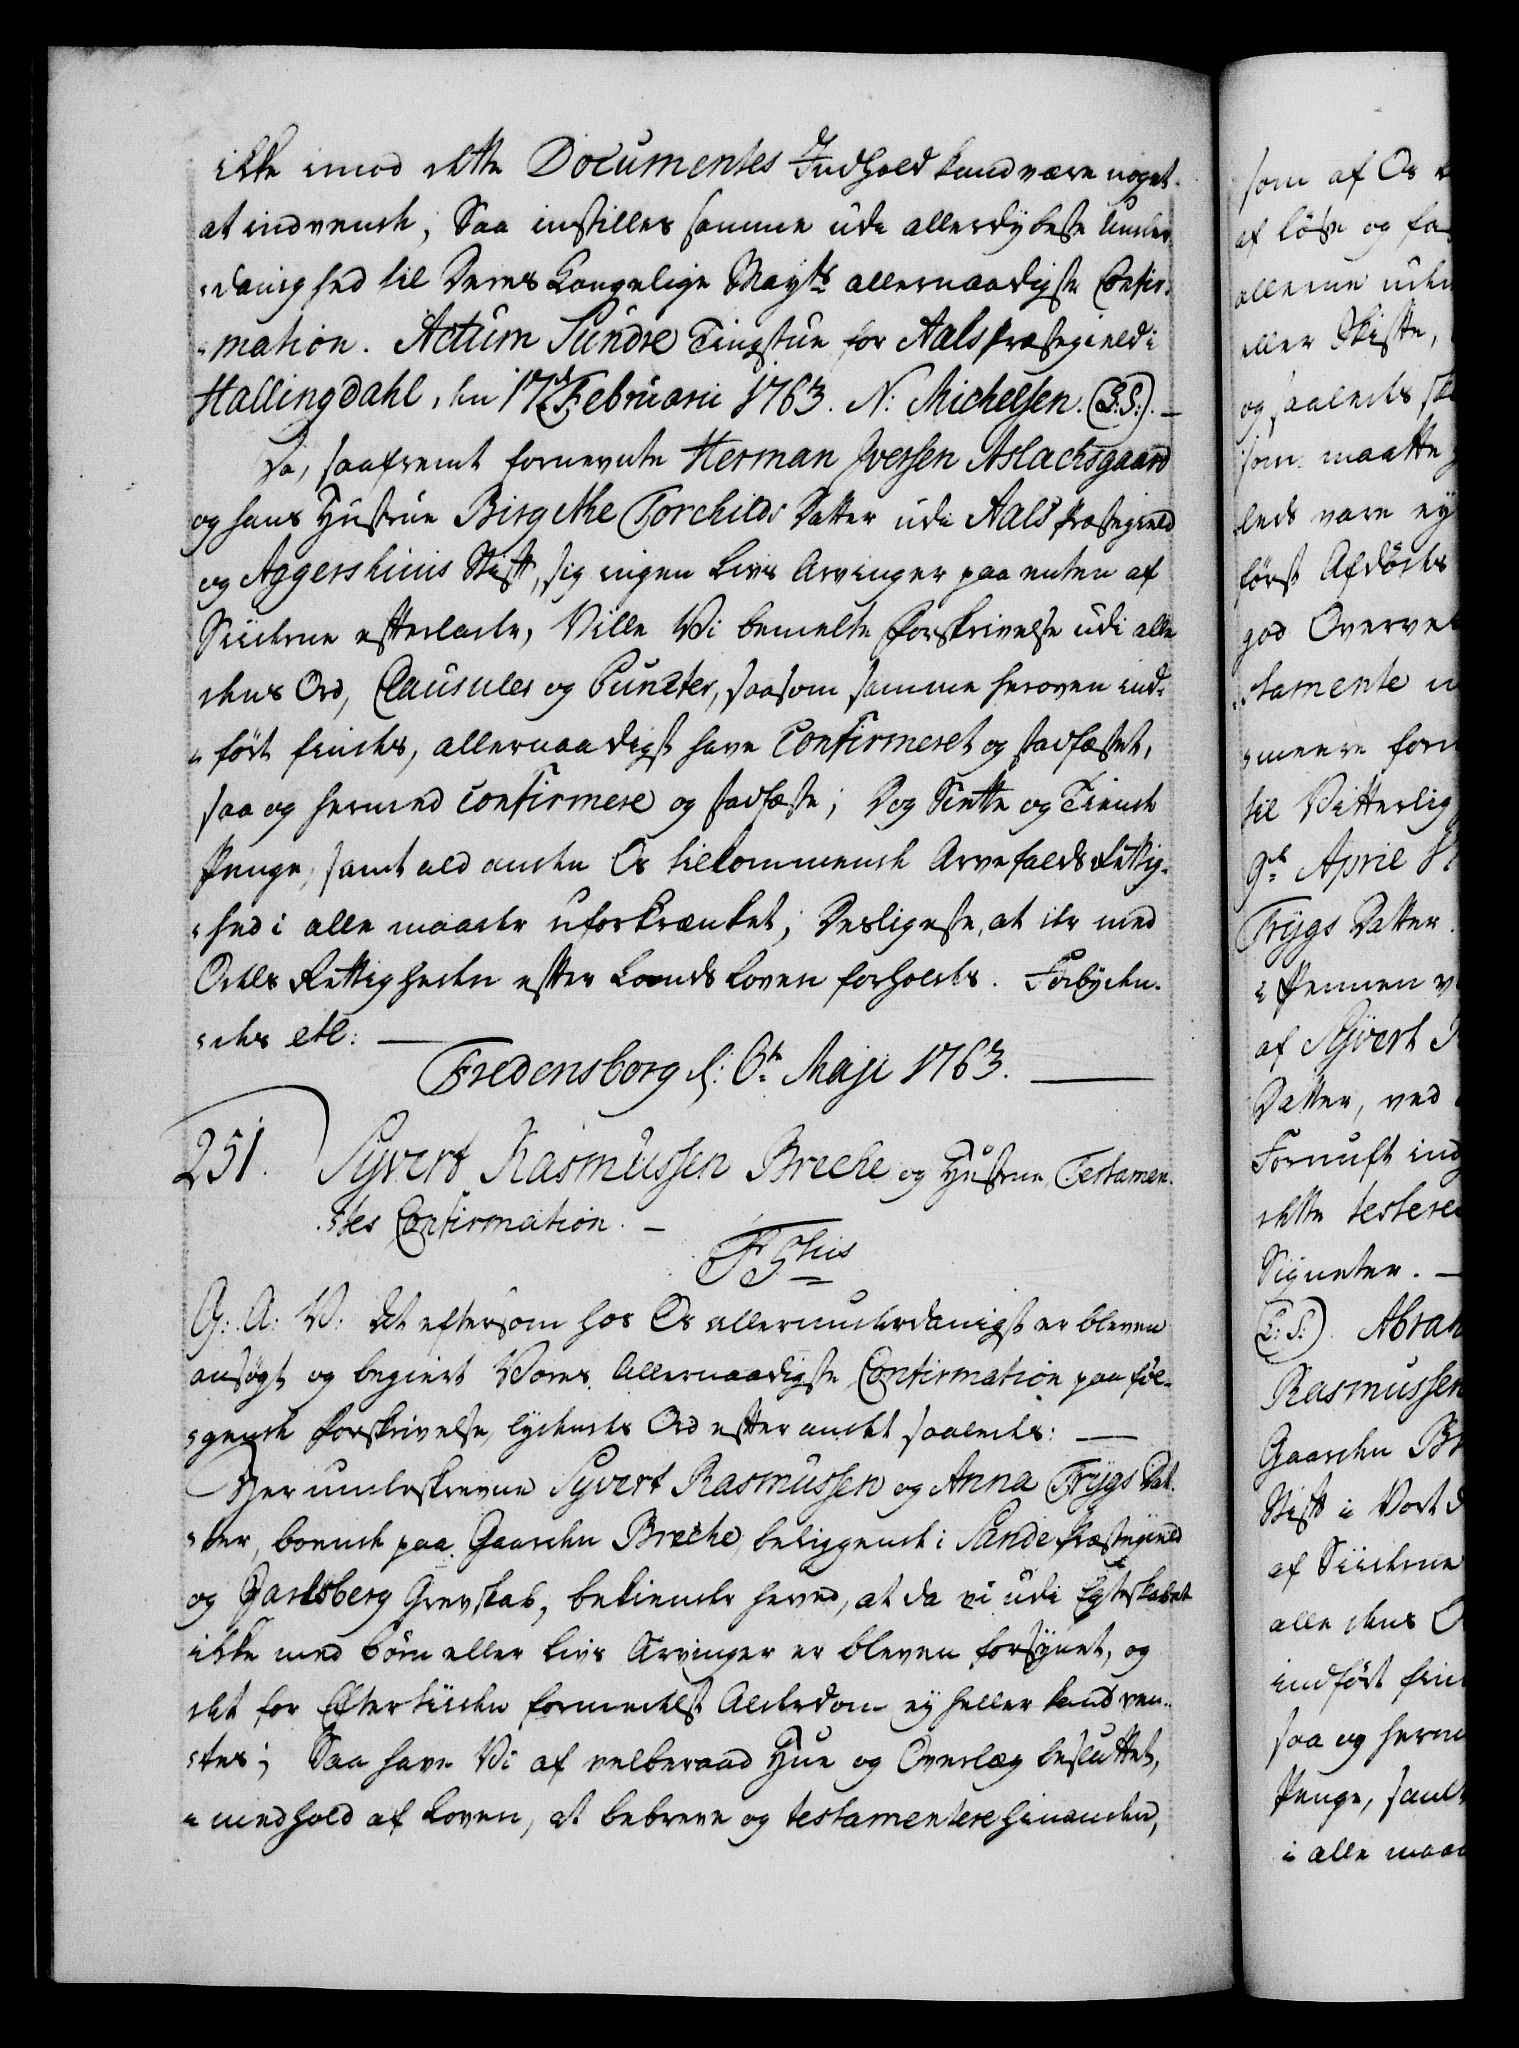 ikke imod dette Documentes Indhold kand være noget
at indvende, Saa instilles samme udi allerdybeste Under-
danighed til Deres Kongelige Mayts allernaadigste Confir-
mation. Actum Sundre Tingstue for Aals Præstegield i
Hallingdahl, den 17de Februarii 1763. N: Michelsen. (L:S:). —
Da, saafremt fornevnte Herman Iversen Aslachsgaard
og hans Hustrue Birgithe Torchilds Datter udi Aals Præstegield
og Aggershuus Stift, sig ingen Livs Arvinger paa enten af
Siiderne efterlade, Ville Vi bemelte Forskrivelse udi alle
dens Ord, Clausuler og Puncter, saasom samme heroven ind-
ført findes, allernaadigst have Confirmeret og stadfæstet,
saa og hermed confirmere og stadfæste; Dog Siette og Tiende
Penge, samt ald anden Os tilkommende Arvefalds Rettig-
hed i alle maader uforkrænket; Desligeste, at der med
Odels Rettigheden efter Lands Loven forholdes. Forbyden-
des etc: —
Fredensborg d: 6te Maji 1763. —
251. Syvert Rasmussen Breche og Hustrue Testamen-
tes Confirmation. —
F 5tus
G: A: V: At eftersom hos Os allerunderdanigst er bleven
ansøgt og begiert Vores Allernaadigste Confirmation paa føl-
gende Forskrivelse, lydendes Ord efter andet saaledes: —
Her underskrevne Syvert Rasmussen og Anna Trygs Dat-
ter, boende paa Gaarden Breche, beliggende i Sande Præstegield
og Jarlsberg Grevskab, bekiender herved, at da vi udi Egteskabet
ikke med Børn eller Livs Arvinger er bleven forsynet, og
det for Eftertiiden formedelst Alderdom ey heller kand ven-
tes; Saa have Vi af velberaad Hue og Overlæg besluttet,
i medhold af Loven, at bebreve og testamentere hinanden,
som af Os
af løse og fa
allerne uden
eller Skifte,
og saaledes
som maatte
leds vare ey
først Afdødes
god Overve
tamente
meere for
til Vitterlig
9de April 17
Trygs Datter
i Pennen
af Syvert R
Datter, ved
Fornuft ind
dette testere
Signeter. —
(L:S:). Abrah
Rasmussen
Gaarden Br
Stift i Vort
af Siiderne
alle dens O
indført fin
saa og herm
Penge, samt
i alle maa